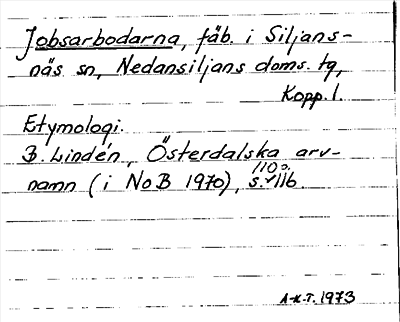 Jobsarbodarna, fäb. i Siljans-
näs sn, Nedansiljans doms. tg,
Kopp. l.
Etymologi.
B. Lindén, Österdalska arv-
namn (i NoB 1970), s. 110 o. 116.
A-K.T. 1973